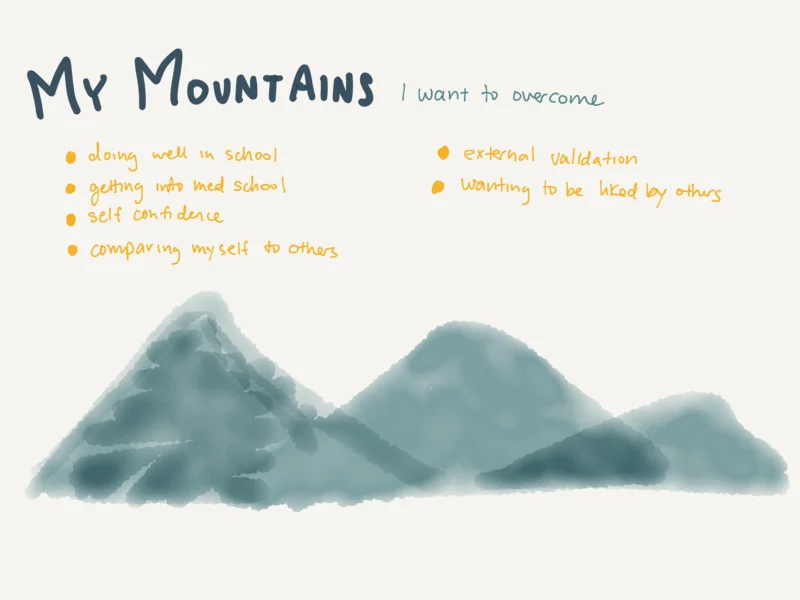 My Mountains I want to overcome
doing well in school
getting into med school
self confidence
comparing myself to others
external validation
wanting to be liked by others